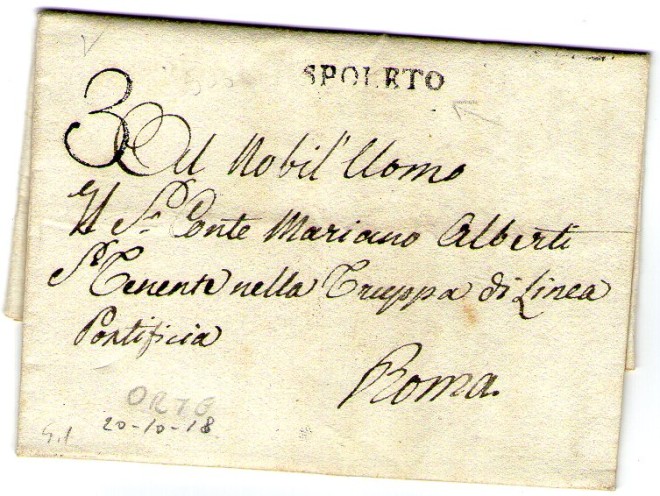 SPOLETO
3
Al Nobil' Uomo
Il Sr. Conte Mariano Alberti
Sto Tenente nella Truppa di Linea
Pontificia
Roma.
ORTE
20-10-18